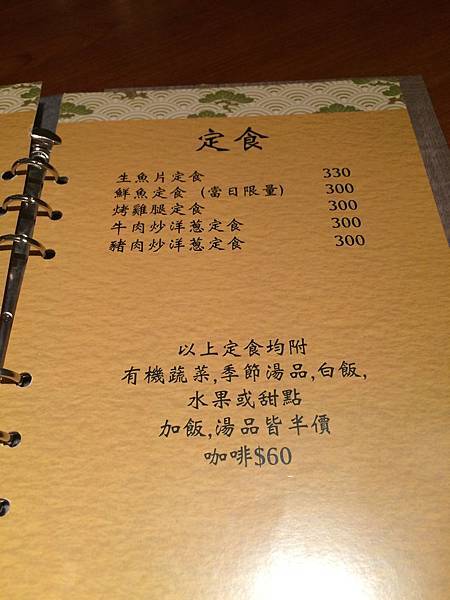 定食
生魚片定食 330
鮮魚定食 (當日限量) 300
烤雞腿定食 300
牛肉炒洋蔥定食 300
豬肉炒洋蔥定食 300
以上定食均附
有機蔬菜,季節湯品,白飯,
水果或甜點
加飯,湯品皆半價
咖啡$60